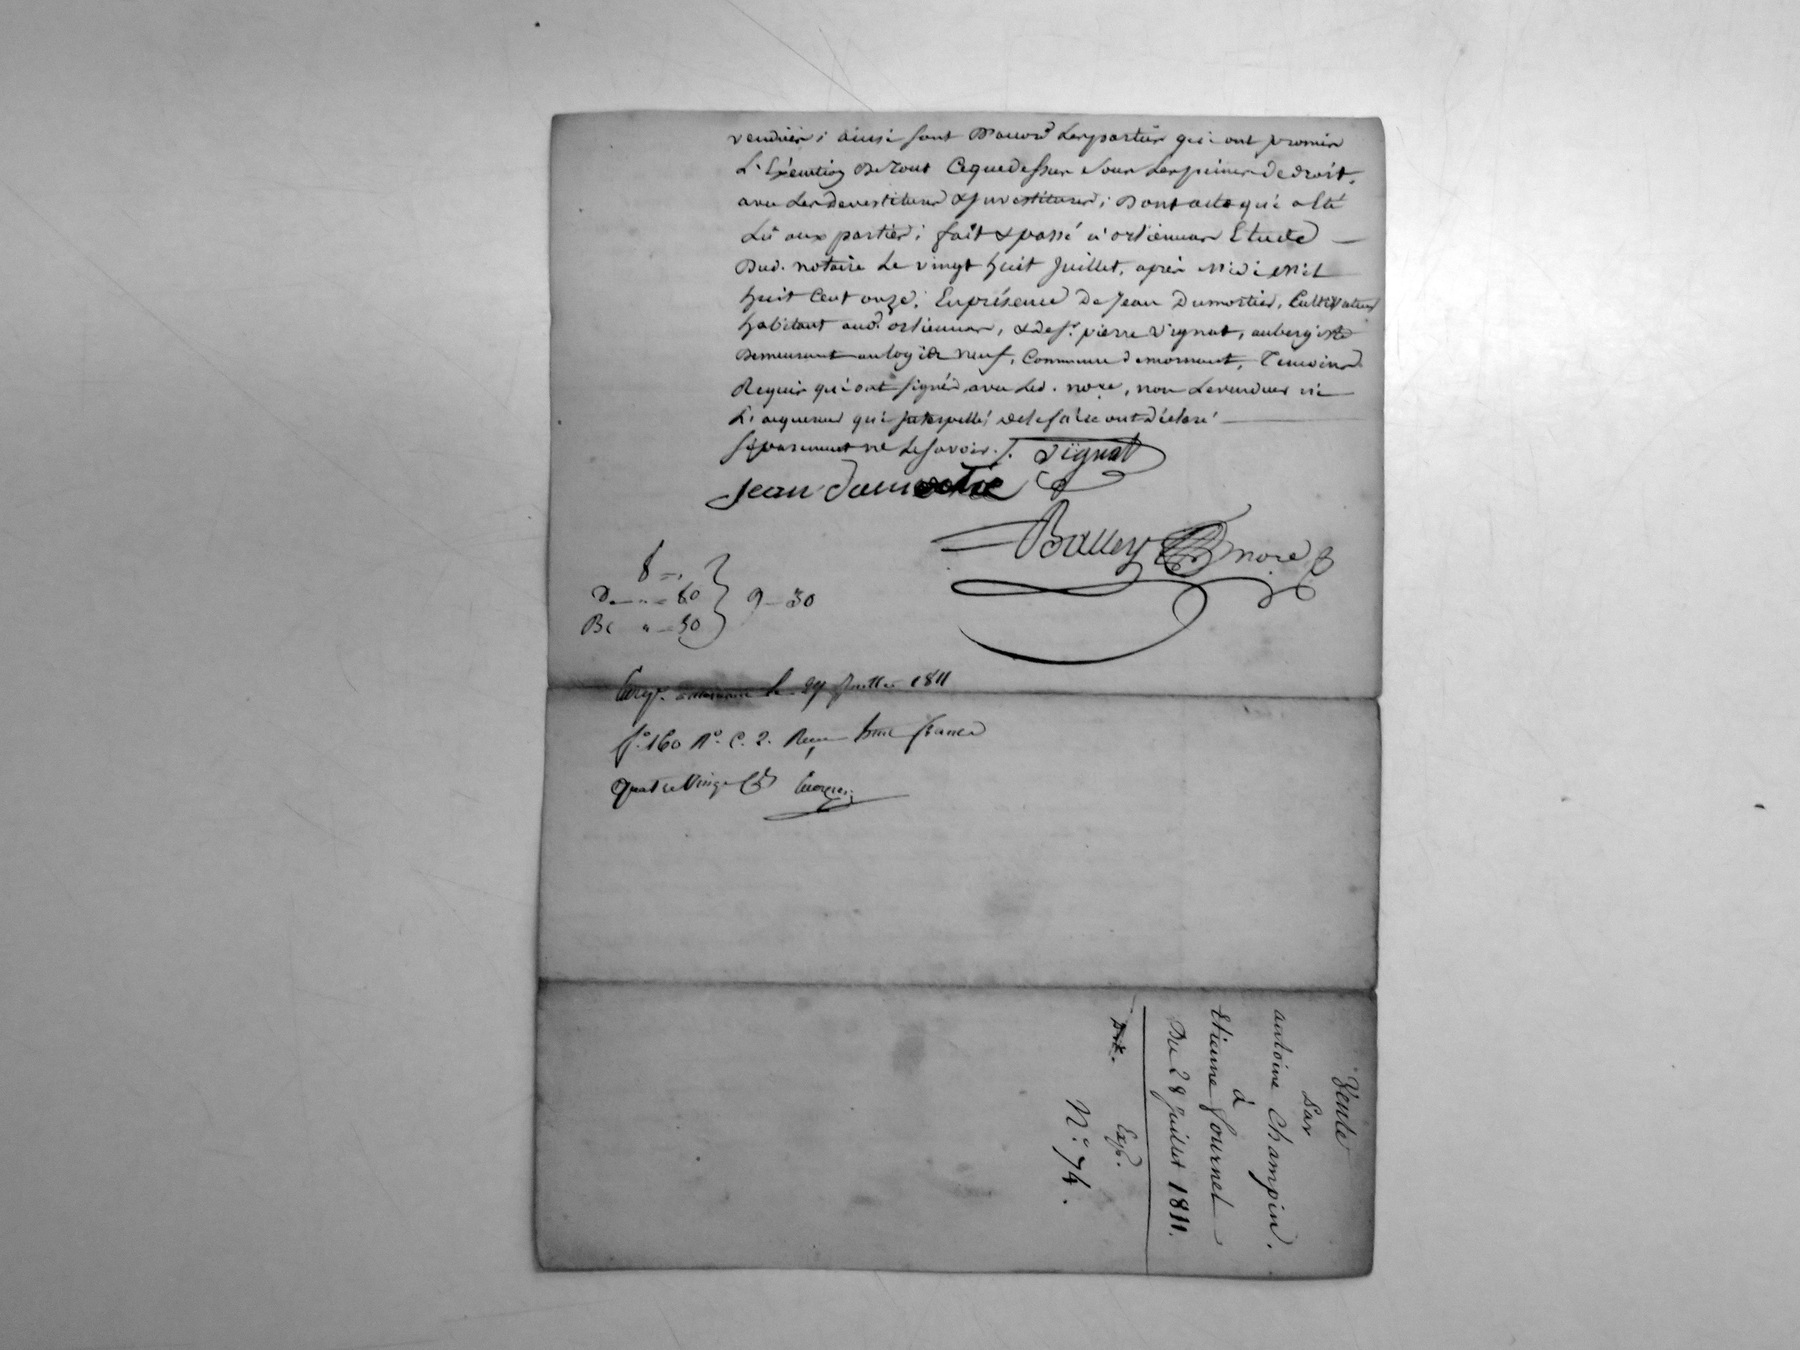 vendues; ainsi sont D'accord Les parties qui ont promis
L'Exécution De tout Ce que dessus sous Les peines de droit,
avec Les devestitures & Investitures; Dont acte qui a Eté
Lû aux parties; fait & passé à orliennas Etude
Dud. notaire Le vingt huit Juillet, après Midi Mil
huit Cent onze; En présence De Jean Dumortier, Cultivateur
habitant aud. orliennas, & de Sr. pierre Vignat, aubergiste
Demeurant au logis neuf, Commune de mornant, Temoins
Requis qui ont signés avec Led. nore, non Le vendeur ni
L'acquereur qui Interpellés de le faire ont Déclaré
séparement ne Le savoir. /. Vignat
Jean Dumortie
Balley nore
8
D. " 80
Bt " 50
9 - 30
le 29 Juillet 1811
f.° 160 R.° C. 2. Reçu francs
quatre Vingt
Vente
Par
antoine Champin.
à
Etienne fournel
Du 28 Juillet 1811.
Exp.
N.° 74.